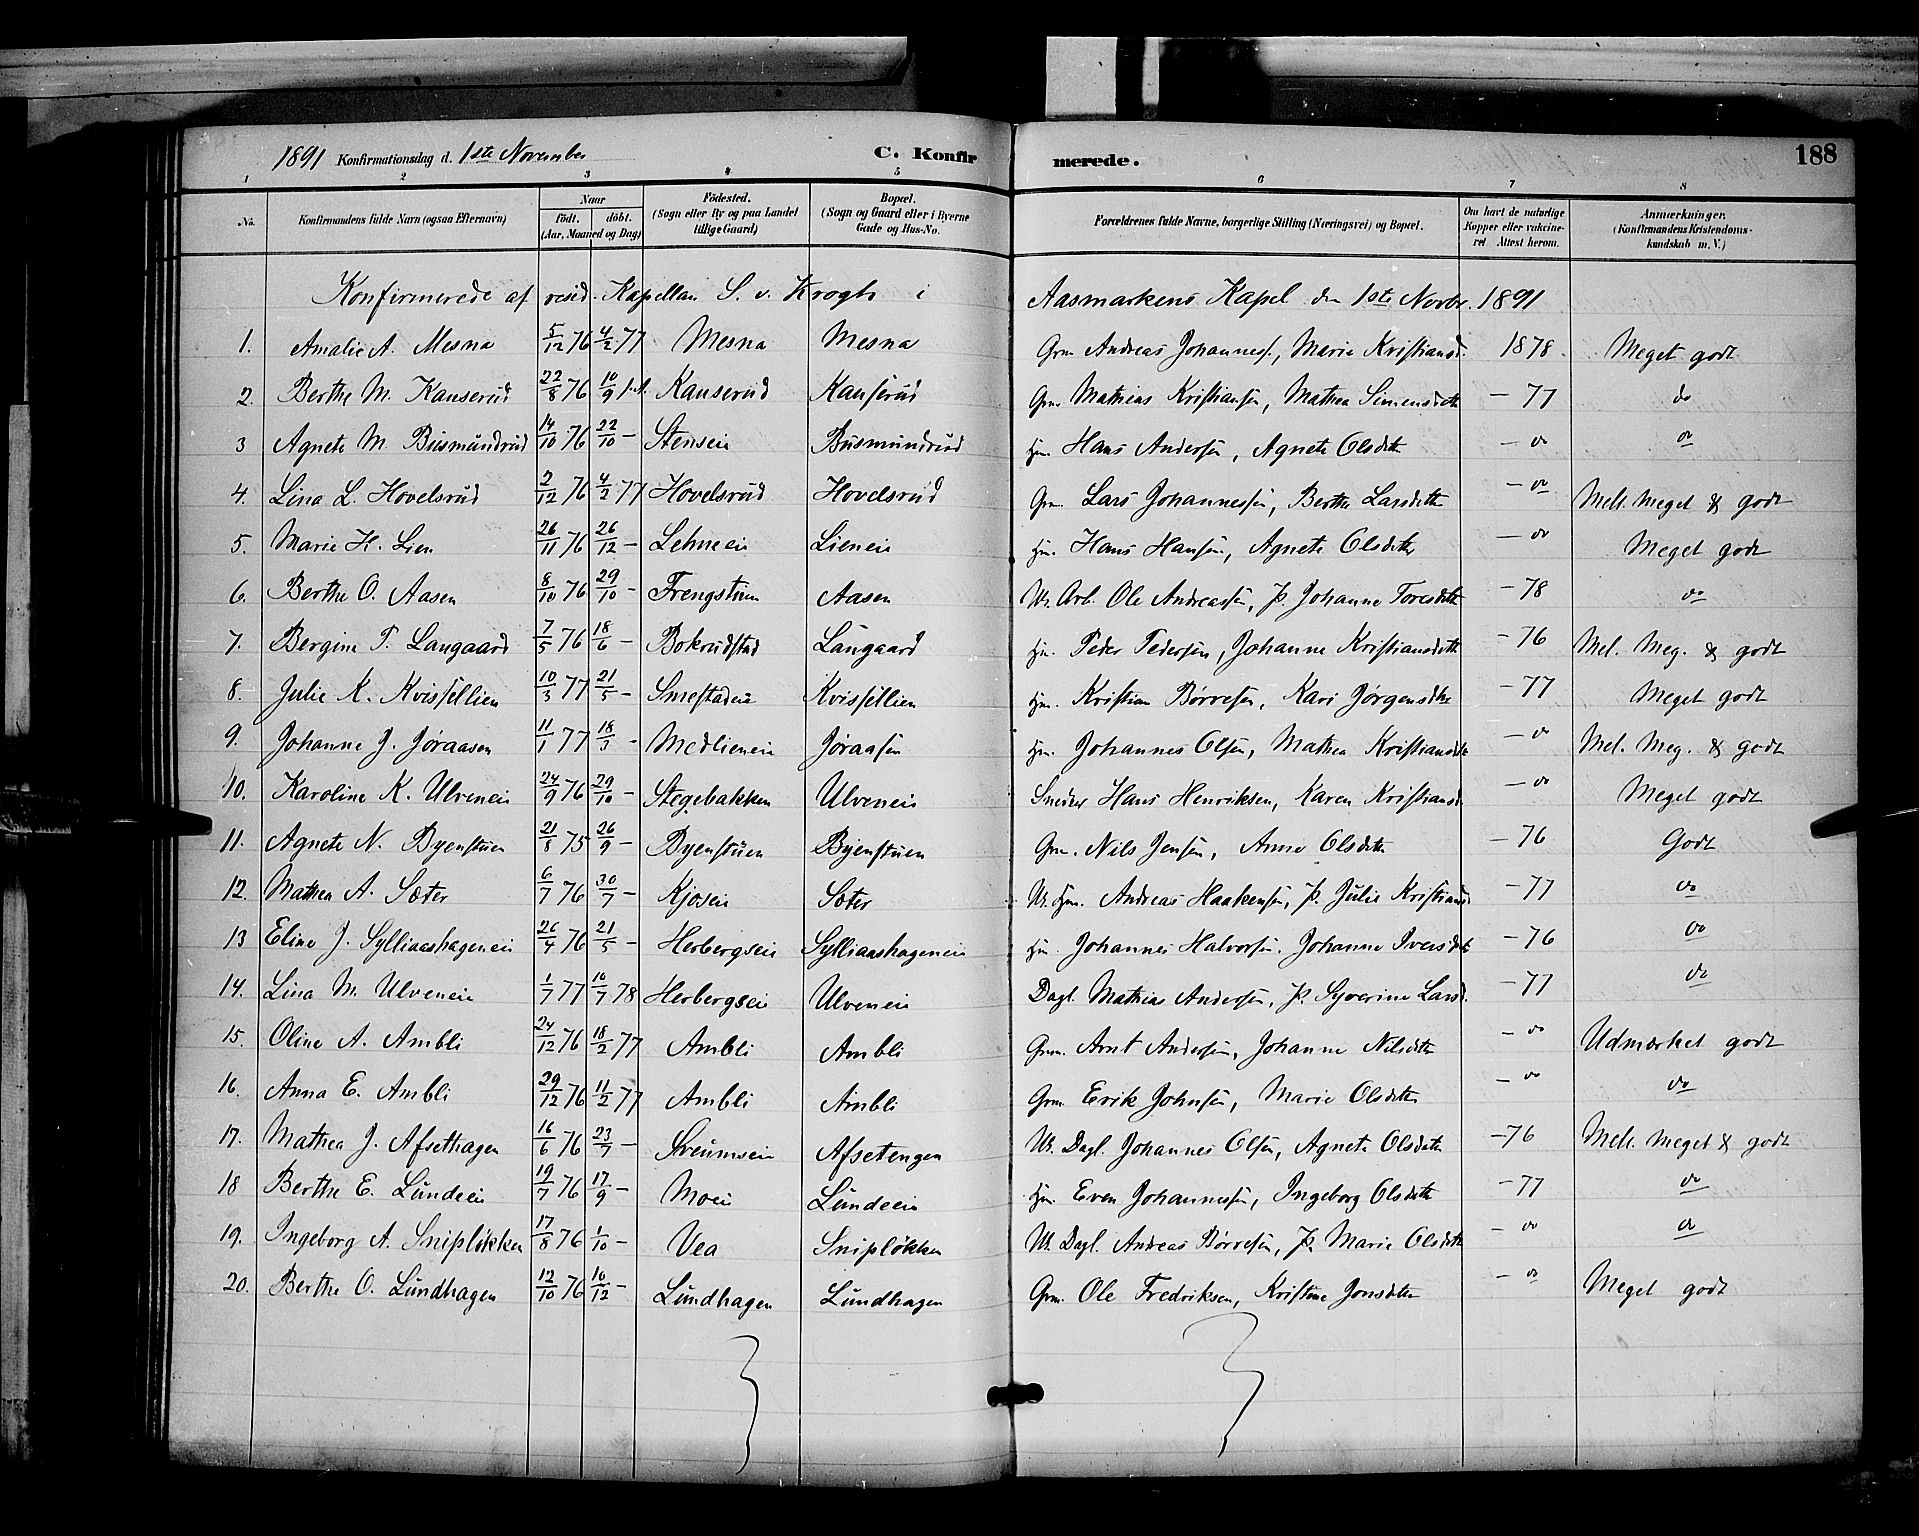 1891 Konfirmationsdag d. 1ste November C. Konfirmerede. 188
1 2 3 4 5 6 7 8
No. Konfirmandens fulde Navn (ogsaa Efternavn) Naar født. døbt. (Aar, Maaned og Dag) Fødested. (Sogn eller By og paa Landet tillige Gaard) Bopæl. (Sogn og Gaard eller i Byerne Gade og Hus-No. Forældrenes fulde Navne, borgerlige Stilling (Næringsvei) og Bopæl. Om havt de naturlige Kopper eller vaccineret Attest herom. Anmærkninger. (Konfirmandens Kristendomskundskab m. V.)
Konfirmerede af resid. Kapellan S. v. Krogh i Aasmarkens Kapel den 1ste Novbr. 1891
1. Amalie A. Mesna 5/12 76 4/2 77 Mesna Mesna Grm. Andreas Johanness., Marie Kristiansd. 1878. Meget godt
2. Berthe M. Kanserud 22/8 76 10/9 s.A. Kanserud Kanserud Grm. Mathias Kristiansen, Mathea Simensdatter - 77 do
3 Agnete M. Busmundrud 14/10 76 22/10 - Stenseie Busmundrud Hjm. Hans Andersen, Agnete Olsdatter - do do
4. Lina L. Hovelsrud 2/12 76 4/2 77 Hovelsrud Hovelsrud Grm. Lars Johannessen, Berthe Larsdatter - do Mell. Meget & godt
5. Marie H. Lien 26/11 76 26/12 - Lehneeie Lieneie Hjm. Hans Hansen, Agnete Olsdatter - do Meget godt
6. Berthe O. Aasen 8/10 76 29/10 - Frengstuen Aasen U. Arb. Ole Andreassen, P. Johanne Toresdatter - 78 do
7. Bergine P. Langaard 7/5 76 18/6 - Bokrudstad Langaard Hjm. Peder Pedersen, Johanne Kristiansdatter - 76 Mel. Meg. & godt
8. Julie K. Kvissellien 10/3 77 21/5 - Smestadeie Kvissellien Hjm. Kristian Børresen, Kari Jørgensdtr - 77 Meget godt
9. Johanne J. Jøraasen 11/1 77 18/3 - Medlieneie Jøraasen Hjm. Johannes Olsen, Mathea Kristiansdtr - do Mel. Meg. & godt
10. Karoline K. Ulveneie 24/9 76 29/10 - Stegebakken Ulveneie Snedker Hans Henriksen, Karen Kristiansd. - do Meget godt
11. Agnete N. Byenstuen 21/8 75 26/9 - Byenstuen Byenstuen Grm. Nils Jensen, Anne Olsdatter - 76 Godt
12. Mathea A. Sæter 6/7 76 30/7 - Kjoseie Sæter U. Hjm. Andreas Haakensen, P. Julie Kristiansd - 77 do
13 Eline J. Sylliaashageneie 26/4 76 21/5 - Herbergseie Sylliaashageneie Hjm. Johannes Halvorsen, Johanne Iversdtr - 76 do
14. Lina M. Ulveneie 1/7 77 10/7 78 Herbergseie Ulveneie Dagl. Mathias Andersen, P. Syverine Larsd. - 77 do
15. Oline A. Ambli 24/12 76 18/2 77 Ambli Ambli Grm. Arnt Andersen, Johanne Nilsdatter - do Udmærket godt
16. Anna E. Ambli 29/12 76 11/2 77 Ambli Ambli Grm. Erik Johnsen, Marie Olsdatter - do do
17. Mathea J. Afsethagen 16/6 76 23/7 - Streumseie Afsetengen U. Dagl. Johannes Olsen, Agnete Olsdatter - 76 Mell. Meget & godt
18 Berthe E. Lundeeie 19/7 76 17/9 - Moeie Lundeeie Hjm. Even Johannessen, Ingeborg Olsdatter - 77 do
19. Ingeborg A. Snipløkken 17/8 76 1/10 - Vea Snipløkken U. Dagl. Andreas Børresen, P. Marie Olsdatter - do do
20. Berthe O. Lundhagen 12/10 76 10/12 - Lundhagen Lundhagen Grm. Ole Fredriksen, Kristine Jonsdatter - do Meget godt